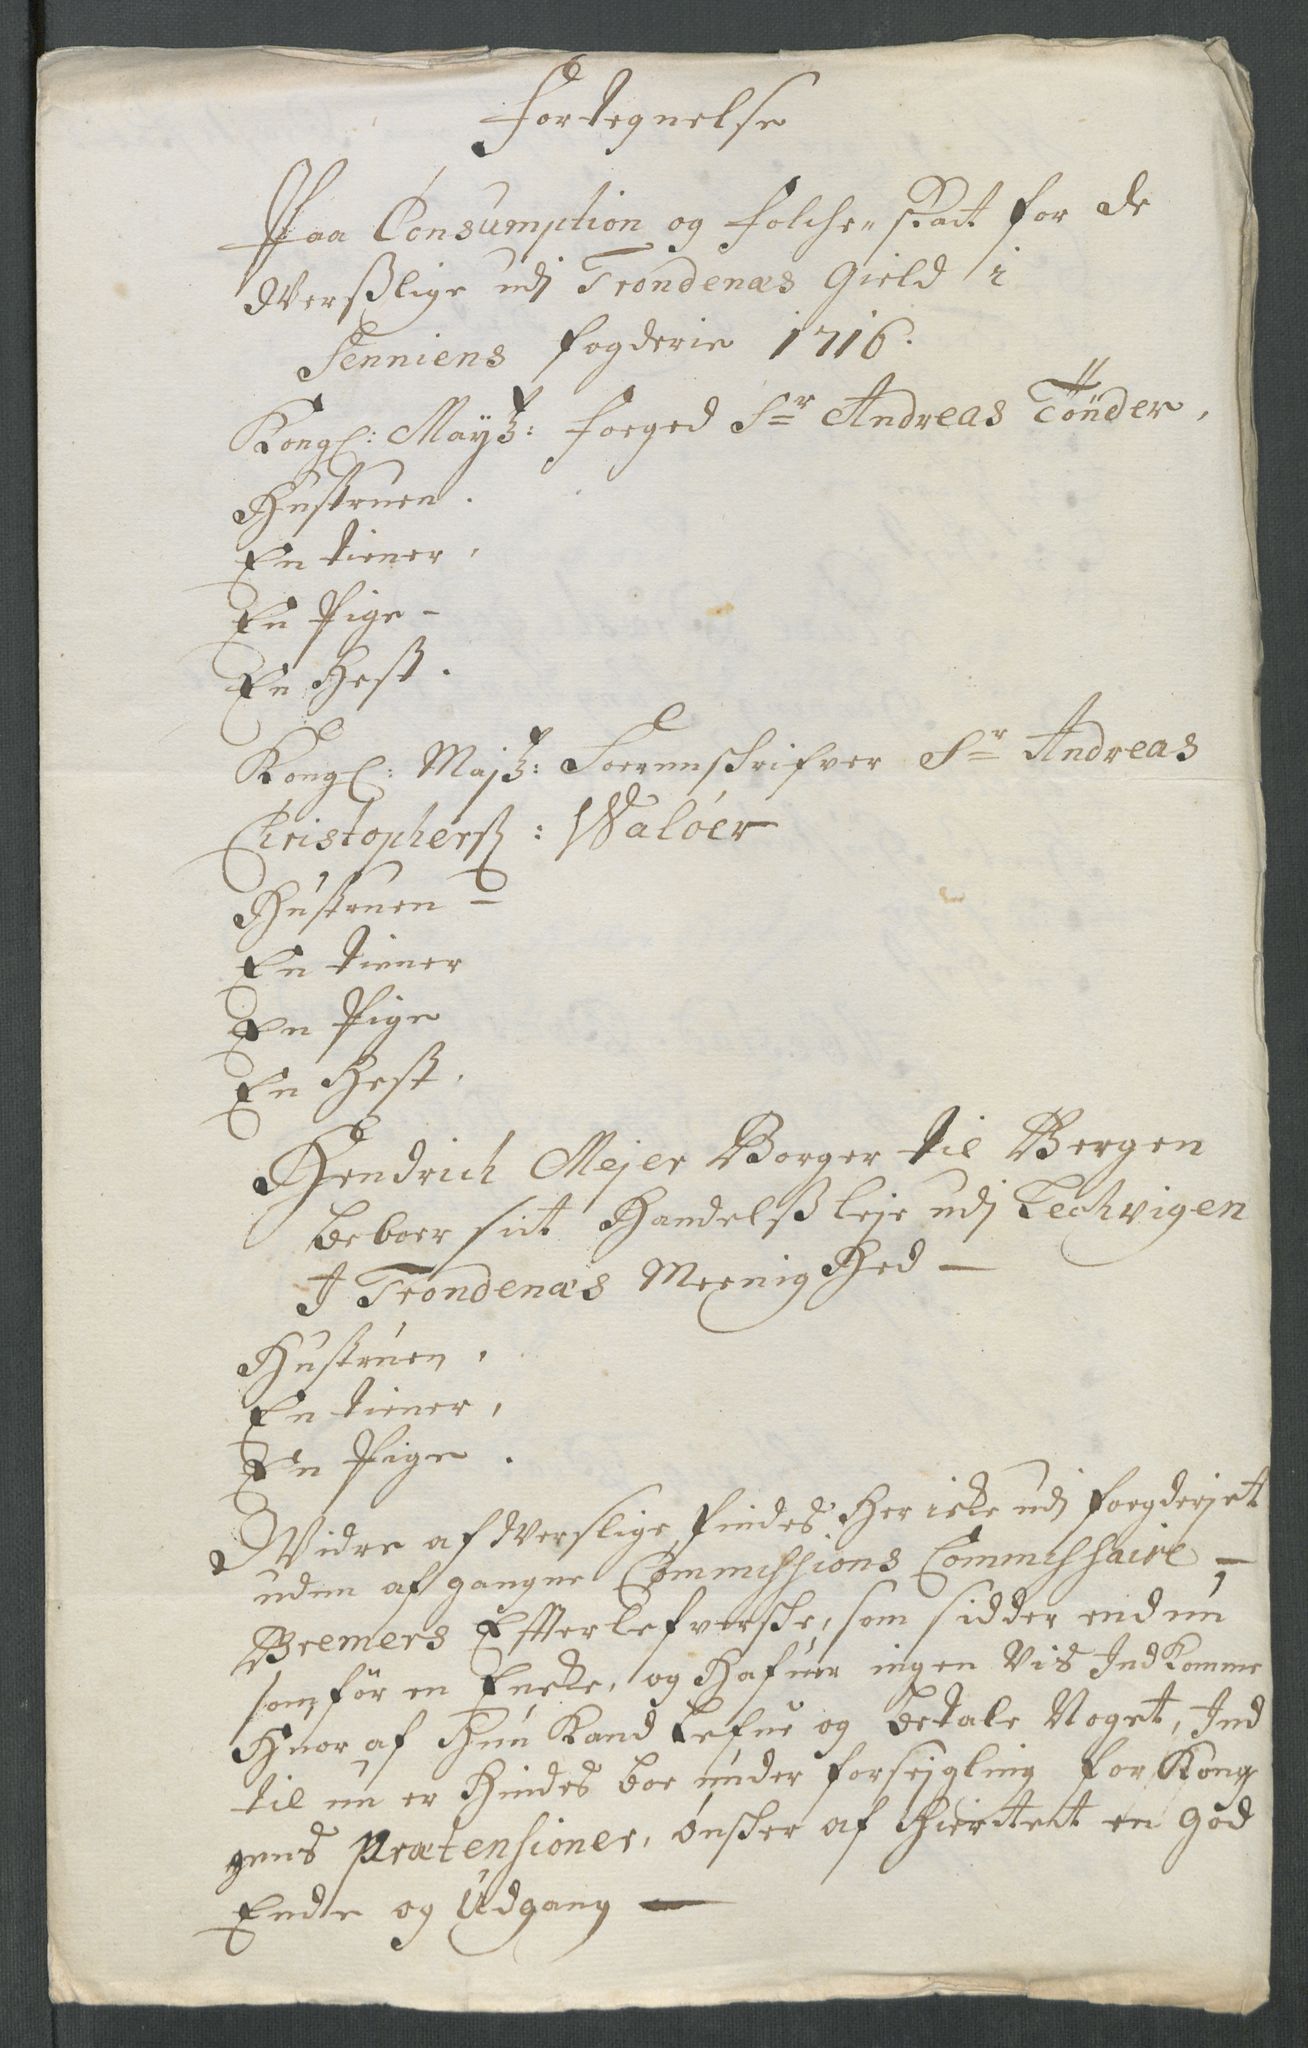 Fortegnelse
Paa Consumption og folche„ skat for de
dVerßlige udj Trondenæs Gield i
Senniens fogderie 1716.
Kongl: Mayß: foeged Sr Andreas Tönder,
Hustruen.
En tiener,
En Pige -
En Hest.
Kongl: Majß: Soerenskrifver Sr Andreas
Christophersß: Waløer
Hustruen -
En tiener
En Pige
En Hest.
Hendrich Mejer Borger til Bergen
beboer sit Handelß leje udj Lechvigen
I Trondenæs Meenig Hed -
Hustruen,
En tiener,
En Pige.
Vidre af dVerslige findes Her icke udj foegderjet
uden af gangne Commissions Commissaire -
Bremers Efterlefverske, som sidder endnu
som för en Encke, og Hafuer ingen Vis Ind Komme
Huor af Hun Kand Lefue og betale Noget, Ind
til nu er Hindes boe under forsejgling for Kong
gens Prætensioner, ønsker af Hiertet en god
Ende og Udgang -